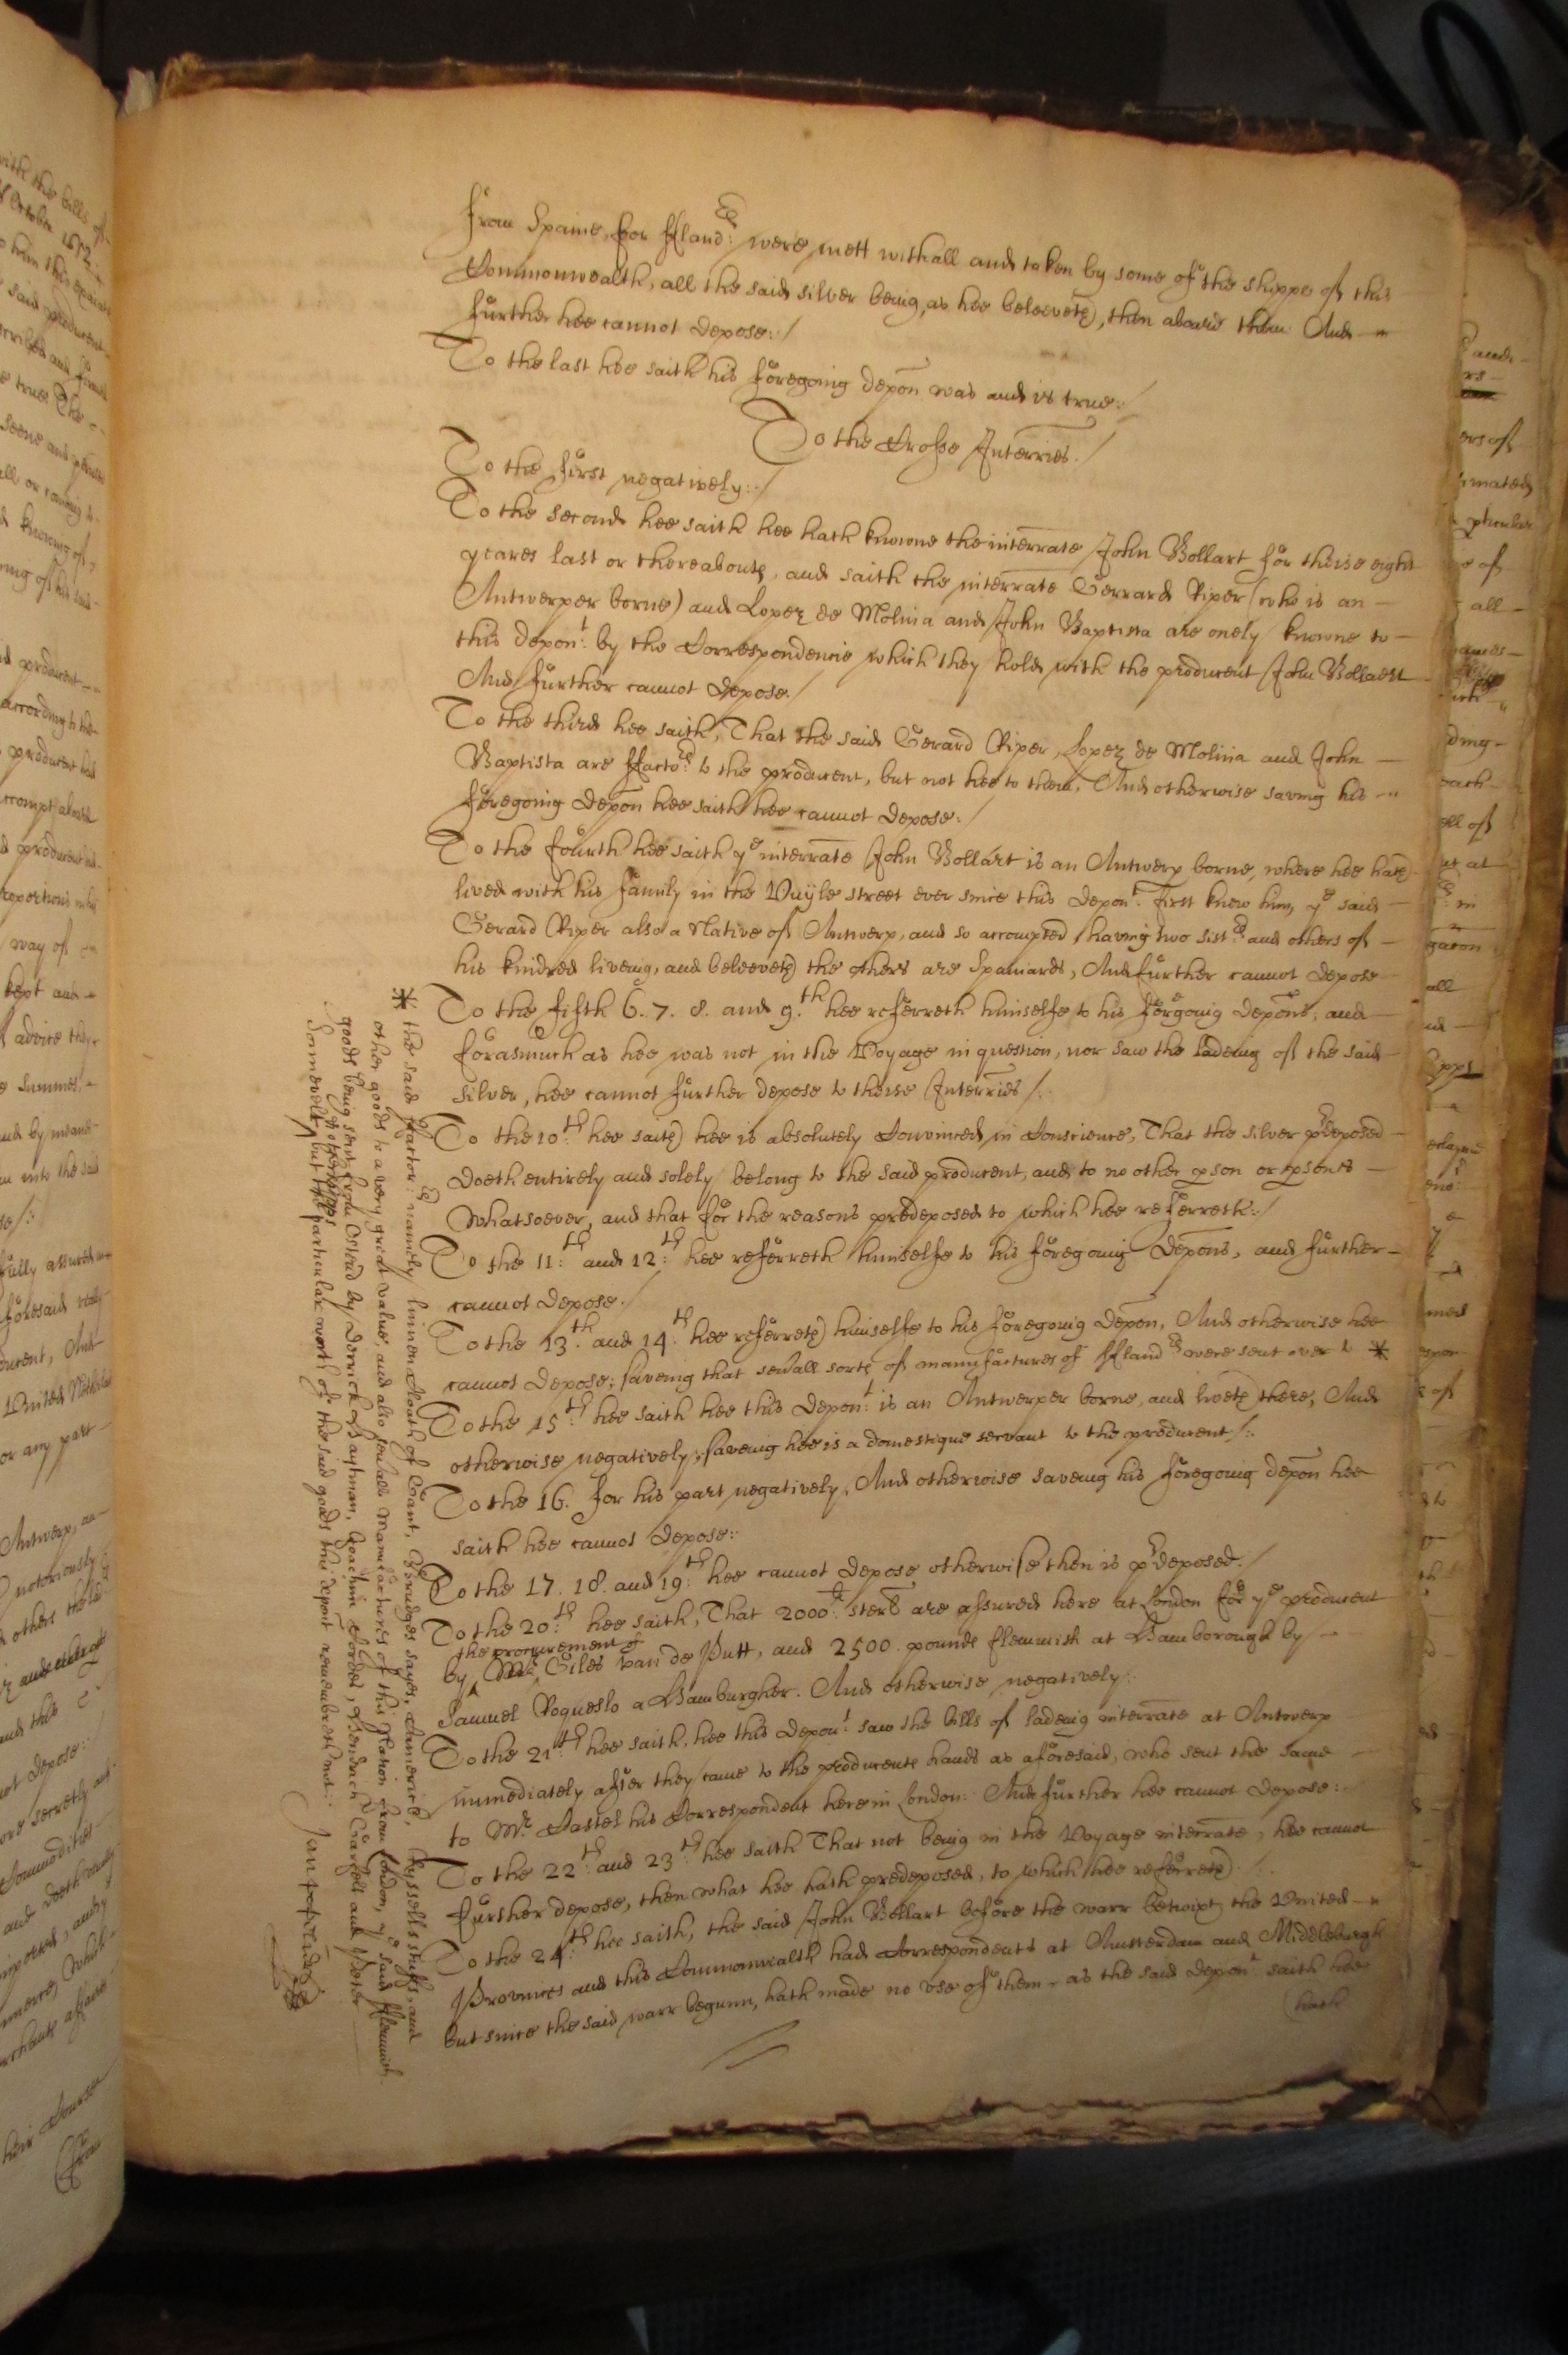 from Spaine, for Fland:rs were mett withall and taken by some of the shipps of this
Commonwealth, all the said silver being, as hee beleeveth, then aboard them. And
further hee cannot depose:/
To the last hee saith his foregoing depon was and is true:/
To the Crosse Interries./
To the first negatively:/
To the second hee saith hee hath knowne the interrate John Bollart for theise eight
yeares last or thereabouts, and saith the interrate Gerrard Riper (who is an
Antwerper borne) and Lopez de Molina and John Baptista are onely knowne to
this depont: by the Correspondencie which they hold with the producent John Bollaert
And further cannot depose./
To the third hee saith, That the said Gerard Riper, Lopez de Molina and John
Baptista are Factors: to the producent, but not hee to them, And otherwise saving his
foregoing depon hee saith hee cannot depose:
To the fourth hee saith ye interrate John Bollart is an Antwerp borne, where hee hath
lived with his family in the Vuyle street ever since this depont. first knew him, ye said
Gerard Riper also a Native of Antwerp, and so accompted, having two sistrs and others of
his kindred liveing, and beleeveth the others are Spaniards, And further cannot depose
To the fifth 6. 7. 8. and 9.th hee referreth himselfe to his forgoeing depons, and
forasmuch as hee was not in the Voyage in question, nor saw the ladeing of the said
silver, hee cannot further depose to theise Interries /:
To the 10:th hee saith hee is absolutely Convinced in Conscience, That the silver predeposed
doeth entirely and solely belong to the said producent, and to no other pson or psons
whatsoever, and that for the reasons predeposed to which hee referreth:/
To the 11:th and 12:th hee referreth himselfe to his foregoing depons, and further
cannot depose./
To the 13.th and 14:th hee referreth himselfe to his foregoing depon, And otherwise hee
cannot depose; saveing that sevall sorts of manufactures of Flandrs were sent over to *
To the 15:th hee saith hee this depont: is an Antwerper borne, and liveth there, And
otherwise negatively; saveing hee is a domestique servant to the producent/:
To the 16. for his part negatively, And otherwise saveing his foregoing depon hee
saith hee cannot depose:
To the 17. 18. and 19:th hee cannot depose otherwise then is predeposed:/
To the 20:th hee saith, That 2000:li sterl are assured here at London for ye producent
the procurement of
by Mr Giles van de Putt, and 2500 pounds flemmish at Hamborough by
Samuel Roqueslo a Hamburgher. And otherwise negatively:
To the 21:th hee saith, hee this depont: saw the bills of ladeing interrate at Antwerp
immediately after they came to the producents hands as aforesaid, who sent the same
to Mr: Castel his Correspondent here in London: And further hee cannot depose:
To the 22:th and 23:th hee saith That not being in the Voyage interrate, hee cannot
further depose, then what hee hath predeposed, to which hee referreth /:
To the 24:th hee saith, the said John Bollart before the warr betwixt the United
Provinces and this Commonwealth had Correspondents at Amsterdam and Middleburgh
but since the said warr begunn, hath made no use of them, as the said depont saith hee
hath
* the said Factors: namely linnen Cloath of Gant, Brudges sayes, Camericks, Ryssells stuffs, and
other goods to a very great value, and also sevall Manufactures of this Nation from London, ye said Flemmish
goods being sent from Ostend by Derrick Haghman, Joachim Cordes, and Peter
Somervelt, but the particular worth of the said goods this depont remembreth not: